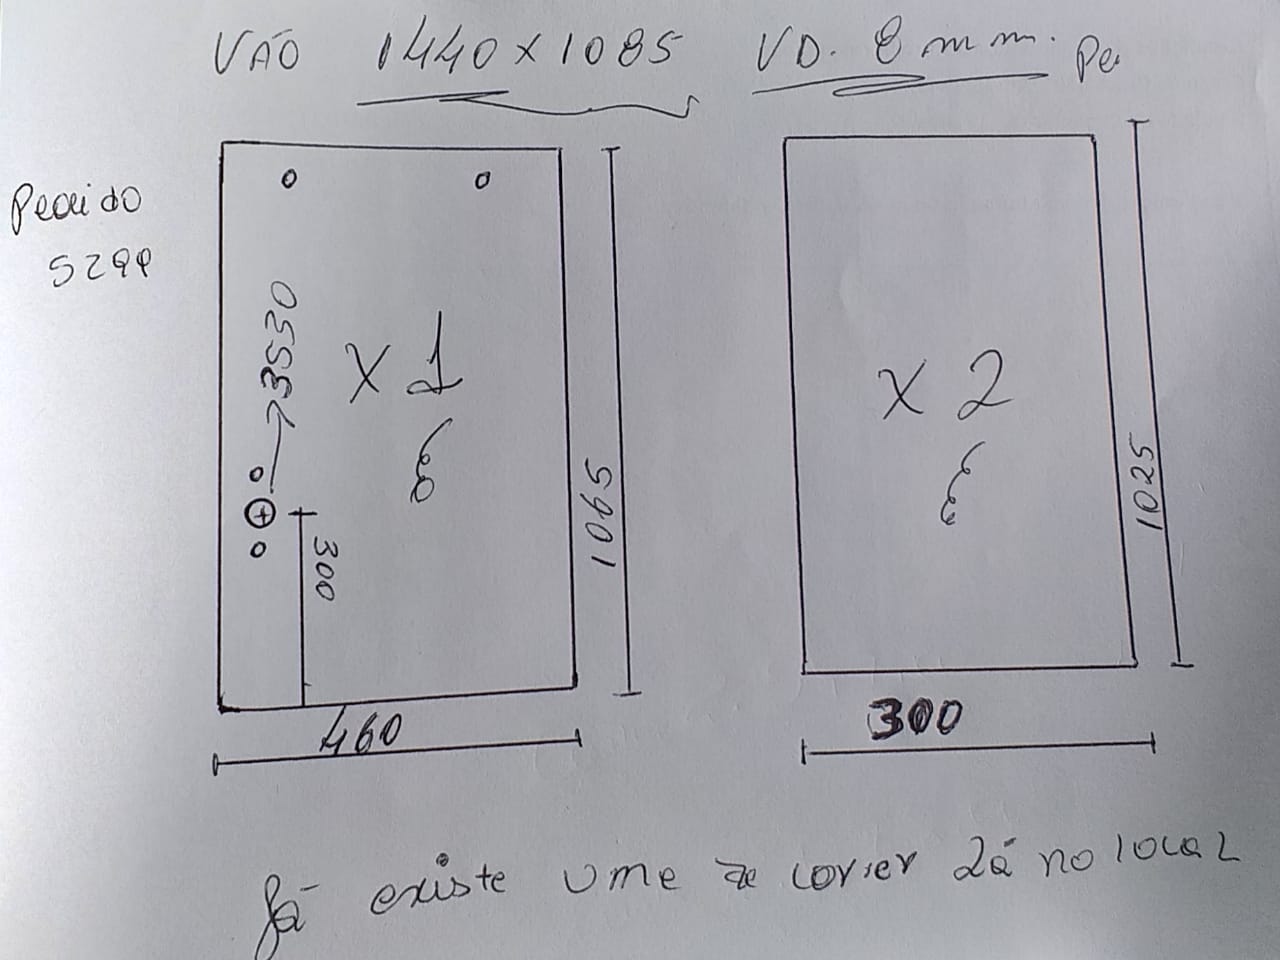 VÃO 1440 x 1085 VD. 8 mm. Pe
Pedido
5299
3530
X 1
300
1065
460
X 2
1025
300
Já existe uma de correr lá no local